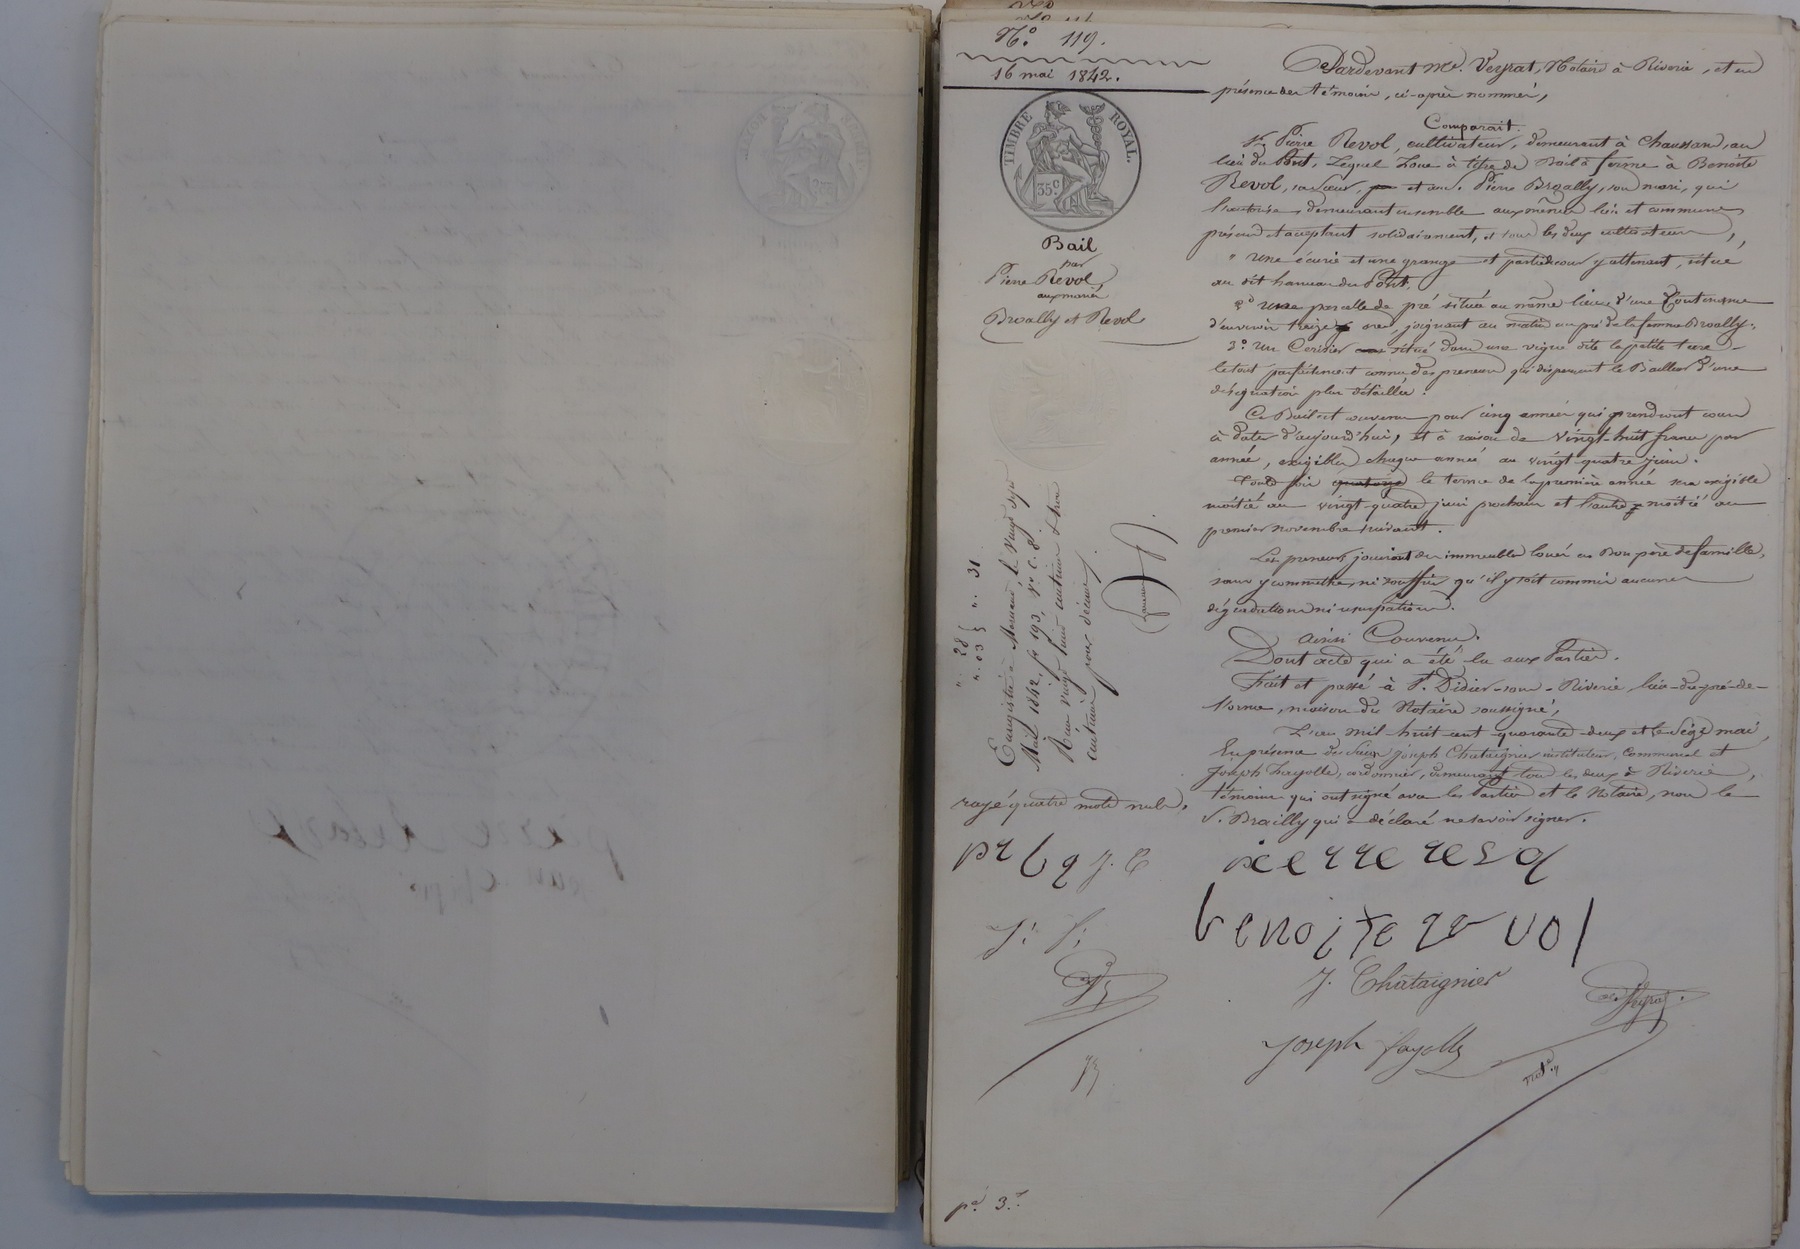 N.o 119.
16 mai 1842.
TIMBRE ROYAL.
35c
Bail
par
Pierre Revol,
aux mariés
Broally et Revol
Pardevant Me. Veyrat, Notaire à Riverie, et en
présence des témoins, ci-après nommés,
Comparait.
Sr. Pierre Revol, cultivateur, demeurant à Chaussan, au
lieu du Pont, Lequel Loue à titre de Bail à ferme à Benoite
Revol, sa sœur, et au s. Pierre Broally, son mari, qui
l'autorise, demeurant ensemble aux mêmes lieu et commune,
présens et acceptant solidairement, et tous les deux cultivateurs,
1o une écurie et une grange et partie de cour y attenant, situé
au dit hameau du Pont.
2o une parcelle de pré située au même lieu, d'une Contenance
d'environ treize ares, joignant au matin au pré de la femme Broally.
3o. un Cerisier situé dans une vigne dite la petite terre
le tout parfaitement connu des preneurs qui dispensent le Bailleur d'une
désignation plus détaillée.
Ce Bail est convenu pour cinq années qui prendront cours
à dater d'aujourd'hui, et à raison de vingt-huit francs par
année, exigibles chaque année au vingt-quatre juin.
Toutefois le terme de la première année sera exigible
moitié au vingt-quatre juin prochain et l'autre moitié au
premier novembre suivant.
Les preneurs jouiront des immeubles loués en Bon père de famille,
sans y commettre, ni souffrir qu'il y soit commis aucunes
dégradations ni usurpations.
Ainsi Convenu.
Dont acte qui a été lu aux Parties.
Fait et passé à St. Didier-sous-Riverie lieu-du-pré-de-
l'orme, maison du Notaire soussigné,
L'an mil-huit cent quarante-deux et le Seize mai,
En présence des Sieurs joseph Chataignier instituteur Communal et
Joseph Fayolle, cordonnier, demeurant tous les deux à Riverie,
témoins qui ont signé avec les Parties et le Notaire, non le
S. Broally qui a déclaré ne savoir signer.
Enregistré à Mornant, le vingt sept
Mai 1842, fo 193, Vo c. 8
Reçu vingt huit centimes et trois
centimes pour décime.
". 28
". 03
". 31
rayé quatre mots nuls,
pr b q J. C
J. f.
benoite re vol
J. Chataignier
Joseph fayolle
Veyrat.
Not.e
pé. 3.